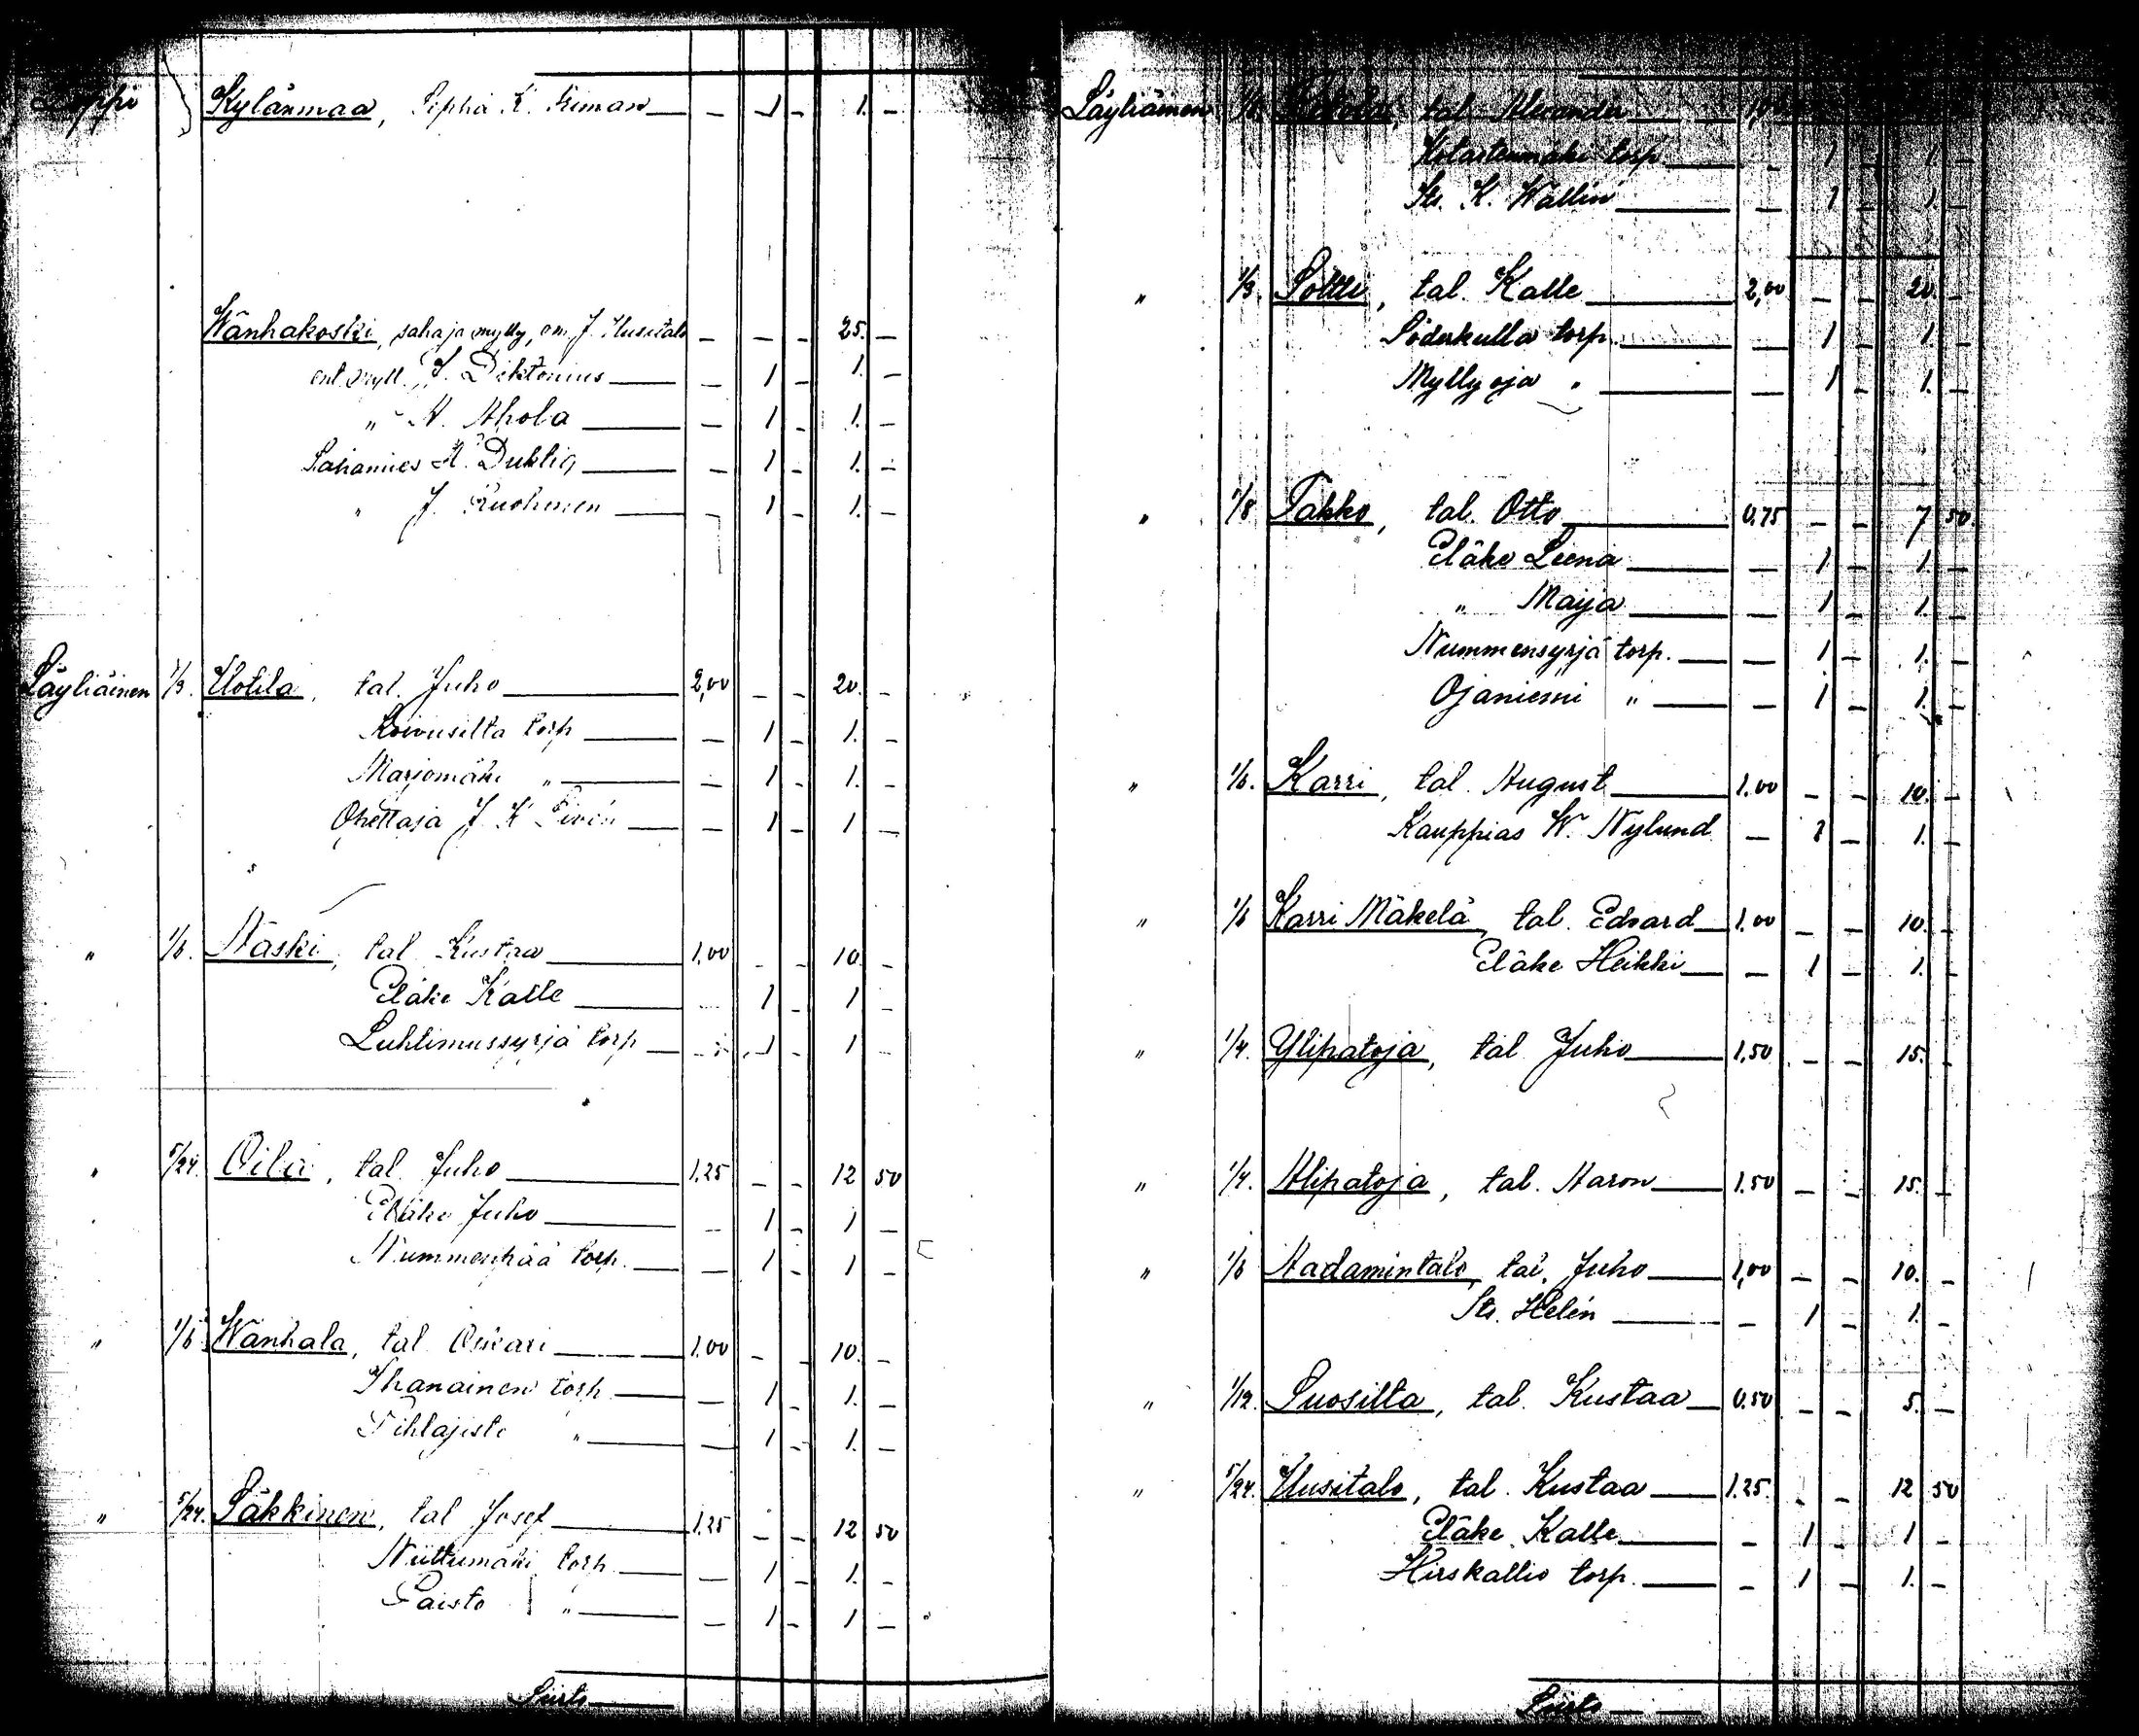 Loppi Kylänmaa, Sephä K. Friman — — 1 — 1. —
Wänhakoski, saha ja mylly, om. J. Uusitalo — — — 25. —
ent. myll. J. Diktonius — — 1 — 1. —
" A. Ahola — — 1 — 1. —
Sahamies A. Duktig — — 1 — 1. —
" J. Ruohonen — — 1 — 1. —
Läyliäinen 1/3. Uotila, tal. Juho — 2,00 — — 20. —
Koivusilta torp — — 1 — 1. —
Marjomäki " — — 1 — 1. —
Opettaja J. K. — — 1 — 1 —
" 1/6. Näski, tal. Kustaa — 1,00 — — 10. —
Eläke Kalle — — 1 — 1 —
Luhtimussyrjä torp — — 1 — 1 —
" 5/24. Oila, tal. Juho — 1,25 — — 12 50
Eläke Juho — — 1 — 1 —
Nummenpää torp. — — 1 — 1 —
" 1/6 Wänhala, tal. Oskari — 1,00 — — 10. —
Ihanainen torp — — 1 — 1. —
Pihlajisto " — — 1 — 1. —
" 5/24. Säkkinen, tal. Josef — 1,25 — — 12 50
Niittumäki torp — — 1 — 1. —
Paisto " — — 1 — 1 —
Siirto —
Läyliäinen 1/6. tal. Alexander —
torp. — — 1 — 1. —
Its. K. Wallin — — 1 — 1. —
" 1/3. Sottu, tal. Kalle — 2,00 — — 20. —
Söderkulla torp. — — 1 — 1. —
Myllyoja " — — 1 — 1. —
" 1/8 Takko, tal. Otto — 0,75 — — 7 50.
Eläke Leena — — 1 — 1. —
" Maija — — 1 — 1. —
Nummensyrjä torp. — — 1 — 1. —
Ojaniemi " — — 1 — 1. —
" 1/6. Karri, tal. August — 1.00 — — 10. —
Kauppias W. Nylund — 1 — 1. —
" 1/6 Karri Mäkelä, tal. Edvard — 1.00 — — 10. —
Eläke Heikki — — 1 — 1. —
" 1/4. Ylipatoja, tal. Juho — 1,50 — — 15. —
" 1/4. Alipatoja, tal. Aaron — 1.50 — — 15. —
" 1/6 Aadamintalo, tal. Juho — 1,00 — — 10. —
Its. Helén — — 1 — 1. —
" 1/12. Suosilta, tal. Kustaa — 0.50 — — 5. —
" 5/24. Uusitalo, tal. Kustaa — 1.25. — — 12 50
Eläke Kalle — — 1 — 1 —
Hirskallio torp. — — 1 — 1. —
Siirto — —